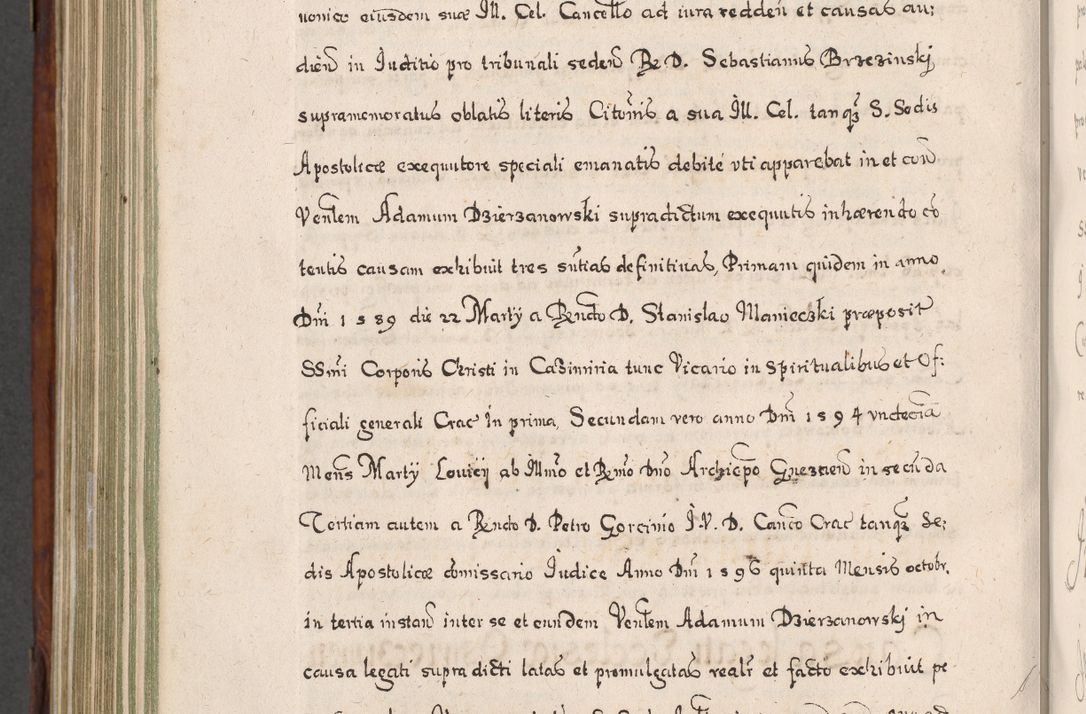 nonico eiusdem suæ Ill. Cel. Cancello ad iura redden et causas au:
dien in Iuditio pro tribunali seden R. D. Sebastianus Brzezinskj
supramemoratus oblatis literis Citonis a sua Ill. Cel. tanq3 S. Sedis
Apostolicæ exequutore speciali emanatis debite vti apparebat in et con
Venlem Adamum Dzierzanowski supradictum exequutis inhærendo co
tentis causam exhibuit tres sntias definitiuas, Primam quidem in anno
Dni 1589 die 22 Martÿ a Rndo D. Stanislao Manieczki præposit
SSmi Corporis Christi in Cazimiria tunc Vicario in Spiritualibus et Of:
ficiali generali Crac in prima, Secundam vero anno Dni 1594 vndecima
Mens Martÿ Louicij ab Illmo et Rmo Dno Archiepo Gneznen in secunda
Tertiam autem a Rndo D. Petro Gorcinio I. V. D. Canco Crac tanq3 Se:
dis Apostolicæ comissario Iudice Anno Dni 1596 quinta Mensis octobr.
in tertia instan inter se et eundem Venlem Adamum Dzierzanowskj in
causa legati supra dicti latas et promulgatas realr et facto exhibuit pe